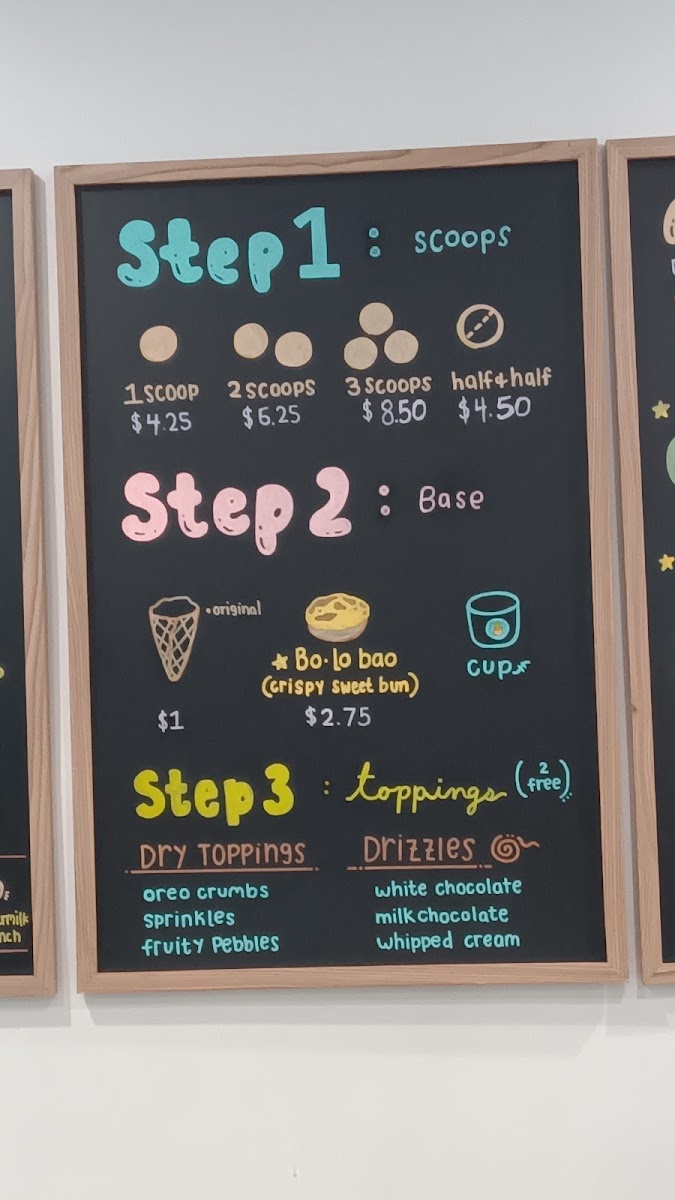 Step 1 : scoops
1 scoop 2 scoops 3 scoops half & half
$4.25 $6.25 $8.50 $4.50
Step 2 : Base
•original
Bo·lo bao
(crispy sweet bun)
cup
$1 $2.75
Step 3 : toppings (2 free)
Dry Toppings Drizzles
oreo crumbs white chocolate
sprinkles milk chocolate
fruity Pebbles whipped cream